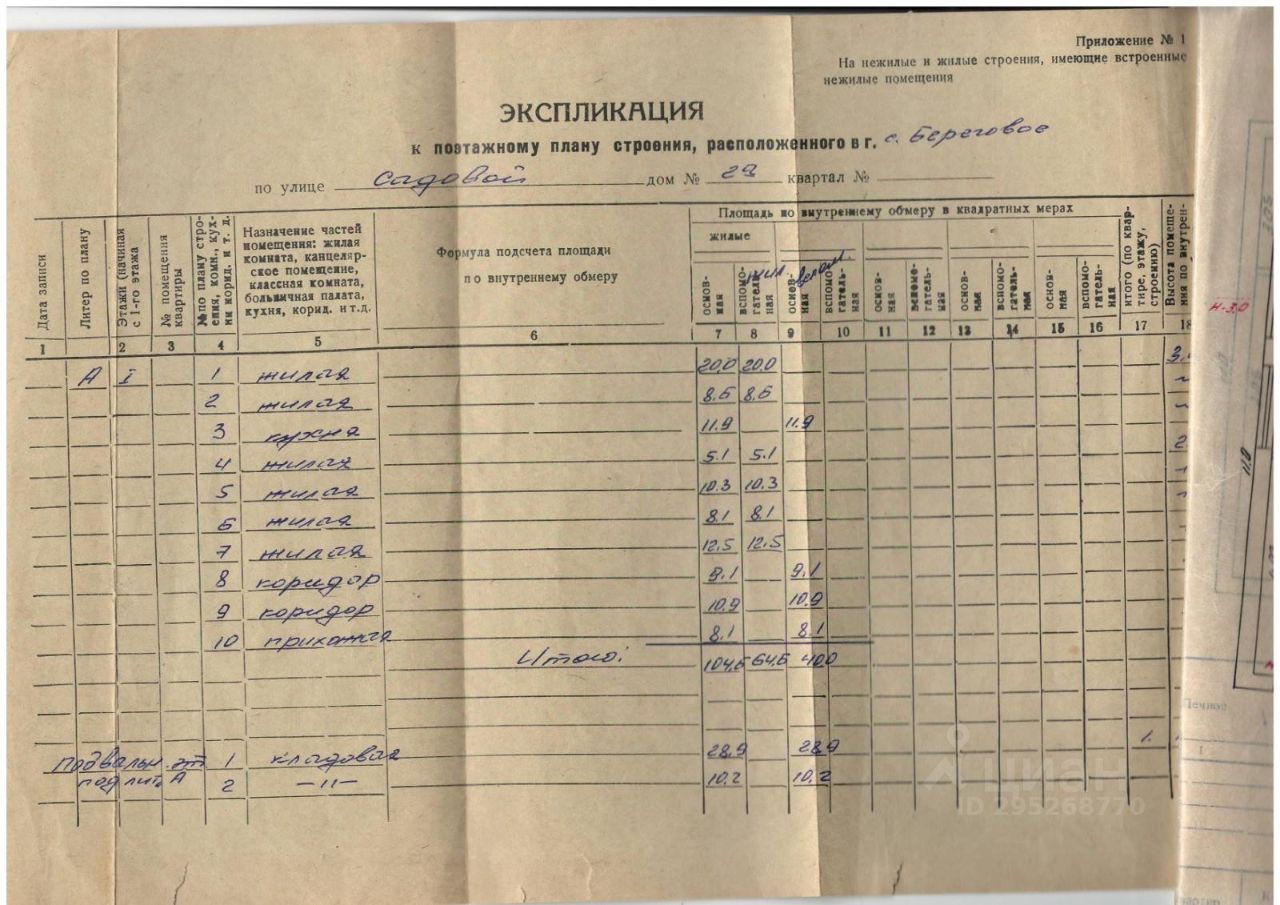 Приложение № 1
На нежилые и жилые строения, имеющие встроенные
нежилые помещения
ЭКСПЛИКАЦИЯ
к поэтажному плану строения, расположенного в г. с. Береговое
по улице Садовой дом № 29 квартал №
Площадь по внутреннему обмеру в квадратных мерах
жилые
жил. вспом.
Дата записи
Литер по плану
Этажи (начиная с 1-го этажа
№ помещения квартиры
№ по плану строения, комн., кухни корид. и т. д.
Назначение частей помещения: жилая комната, канцелярское помещение, классная комната, больничная палата, кухня, корид. и т.д.
Формула подсчета площади
по внутреннему обмеру
основная вспомогательная основная вспомогательная основная вспомогательная основная вспомогательная основная вспомогательная
итого (по квартире, этажу, строению)
Высота помеще-
ния по внутрен-
1 2 3 4 5 6 7 8 9 10 11 12 13 14 15 16 17 18
А I 1 жилая 20,0 20,0
2 жилая 8.6 8.6
3 кухня 11.9 11.9
4 жилая 5.1 5.1
5 жилая 10.3 10.3
6 жилая 8.1 8.1
7 жилая 12.5 12.5
8 коридор 9.1 9.1
9 коридор 10.9 10.9
10 прихожая 8.1 8.1
Итого: 104,6 64,6 40,0
Подвальн. эт 1 кладовая 28,9 28,9
под лит. А 2 —"— 10,2 10,2
H-3,0
11.0
Печное
циан
ID 295268770